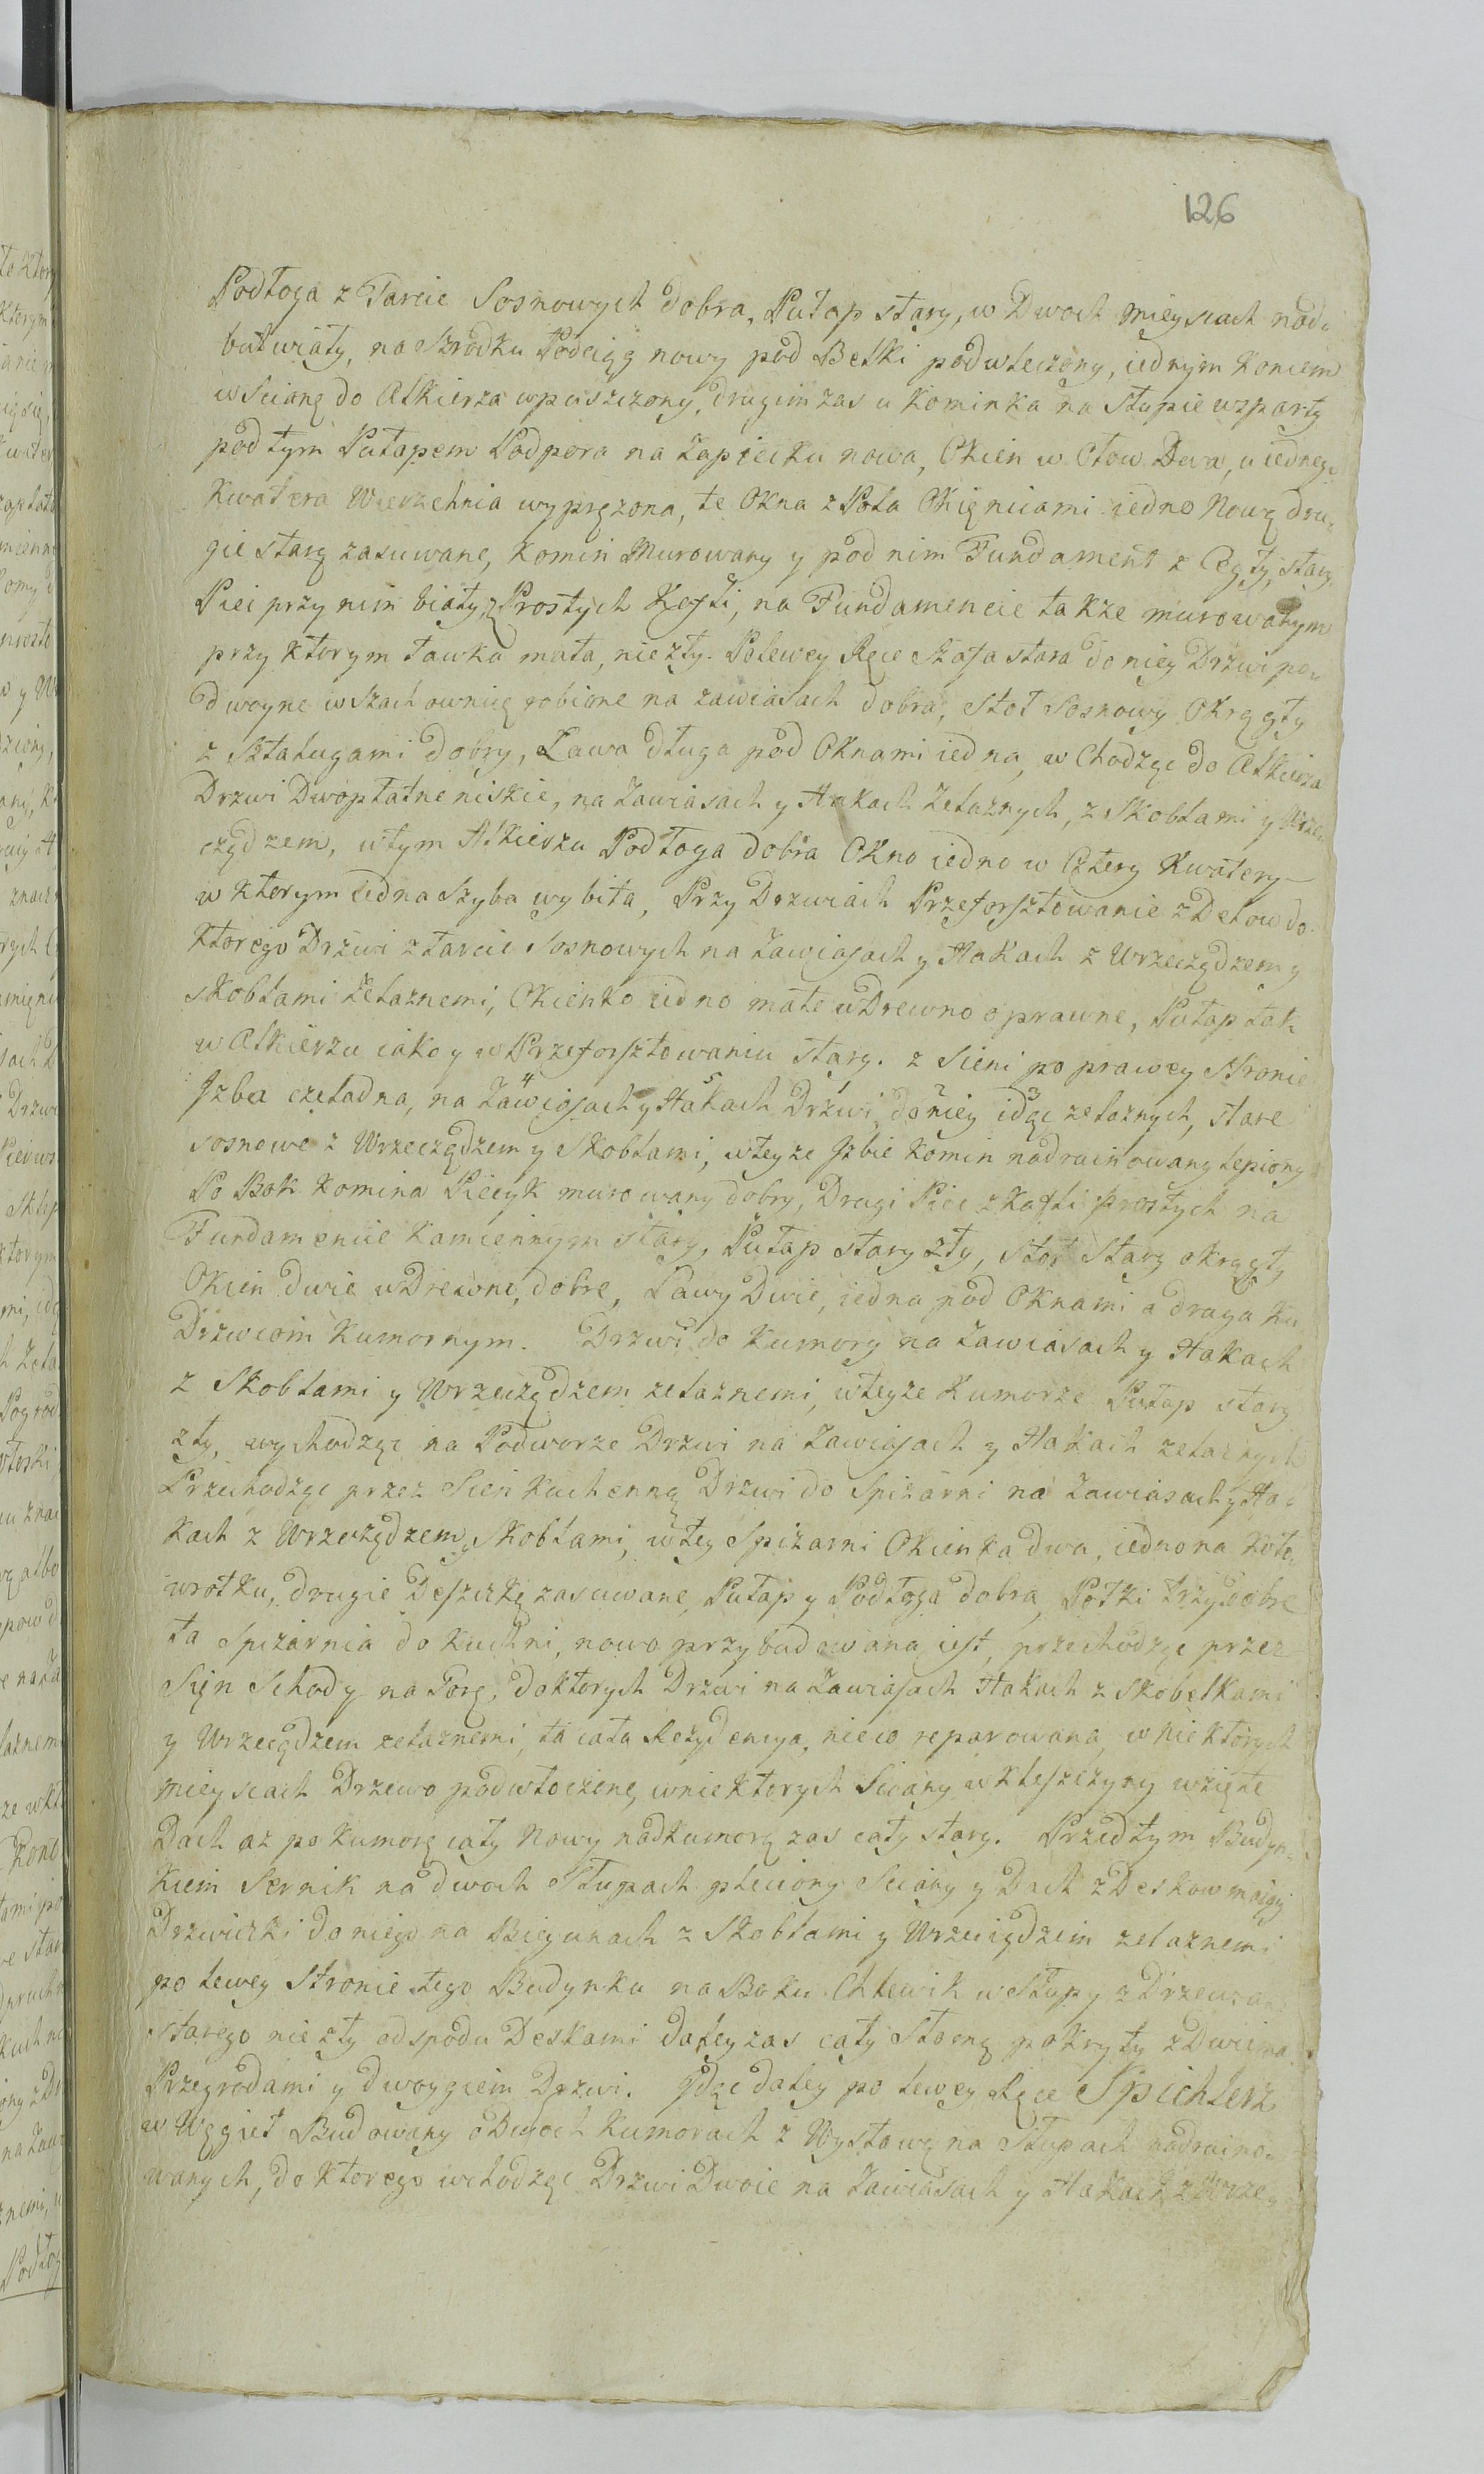 126
Podłoga z Tarcic Sosnowych dobra, Pułap stary, w Dwoch mieyscach nad:
butwiały, na szrodku Podciąg nowy pod Belki podwleczony, iednym Koncem
w scianę do Alkierza wpuszczony, drugim zas u Kominka na Słupie wzparty
pod tym Pułapem Podpora na Zapiecku nowa, Okien w Ołow Dwa, u iednego
Kwatera Wierzchnia wyprężona, te Okna z Pola Okięnicami iedno Nową dru:
gie starą zasuwane, Komin Murowany y pod nim Fundament z Cegły, stary,
Piec przy nim biały, z Prostych Kafli, na Fundamencie także murowanym
przy ktorym Ławka mała, niezły. Po lewey Ręce Szafa stara do niey Drzwi po:
dwoyne w szachownicę robione na zawiasach dobra, Stoł Sosnowy Okręgły
z Sztalugami dobry, Ława długa pod Oknami iedna, w Chodząc do Alkierza
Drzwi Dwopłatne niskie, na Zawiasach y Hakach Zelaznych, z Skoblami y Wrze:
cządzem, w tym Alkierzu Podłoga dobra Okno iedno w Cztery Kwatery
w ktorym iedna Szyba wybita, Przy Drzwiach Przeforsztowanie z Delow do
Ktorego Drzwi z tarcic Sosnowych na Zawiasach y Hakach z Wrzecządzem y
skoblami żelaznemi, Okienko iedno małe w Drewno oprawne, Pułap tak
w Alkierzu iako y w Przeforsztowaniu stary. z Sieni po prawey Stronie
4 5 1 2 3
Jzba czeladna, na Zawiasach y Hakach Drzwi do niey idąc zelaznych, stare
sosnowe z Wrzecządzem y Skoblami, w teyze Jzbie Komin nadruinowany lepiony
Po Bok Komina Piecyk murowany dobry, Drugi Piec z Kafli prostych na
Fundamencie Kamiennym stary, Pułap stary zły, Stoł Stary okrągły
Okien dwie w Drewno, dobre, Ławy Dwie, iedna pod Oknami a druga ku
Drzwiom Kumornym. Drzwi do Kumory na Zawiasach y Hakach
z Skoblami y Wrzecządzem zelaznemi, w teyze Kumorze Pułap stary
zły, wychodząc na Podworze Drzwi na Zawiasach y Hakach zelaznych
Przechodząc przez Sien Kuchenną Drzwi do Spiżarni na Zawiasach y Ha:
kach z Wrzecządzem y Skoblami, w tey Spiżarni Okienka dwa, iedno na Koło:
wrotku, drugie Deszczką zasuwane, Pułap y Podłoga dobra, Połki trzy dobre
ta Spizarnia do Kuchni, nowo przybudowana iest, przechodząc przez
Sięn Schody na Gorę, do ktorych Drzwi na Zawiasach Hakach z Skobelkami
y Wrzeciądzem zelaznemi, ta cała Rezydencya, nieco reparowana, w niektorych
mieyscach Drzewo podwłoczone, w niektorych Sciany w kleszczyny wzięte
Dach az po Kumorę cały Nowy nad kumorą zas cały stary. Przed tym Budyn:
kiem Sernik na dwoch Słupach pleciony Sciany y Dach z Deskow maiący
Drzwiczki do niego na Biegunach z Skoblami y Wrzeciądzem zelaznemi
po lewey Stronie tego Budynku na Boku Chlewik w Słupy z Drzewa
starego niezły od spodu Deskami daley zas cały Słomą pokryty z Dwiema
Przegrodami y dwoygiem Drzwi. Jdąc daley po lewey Ręce Spichlerz
w Węgieł Budowany o Dwoch Kumorach z Wystawą na Słupach nadruino:
wanych, do Ktorego wchodząc Drzwi Dwoie na Zawiasach y Hakach z Wrze: